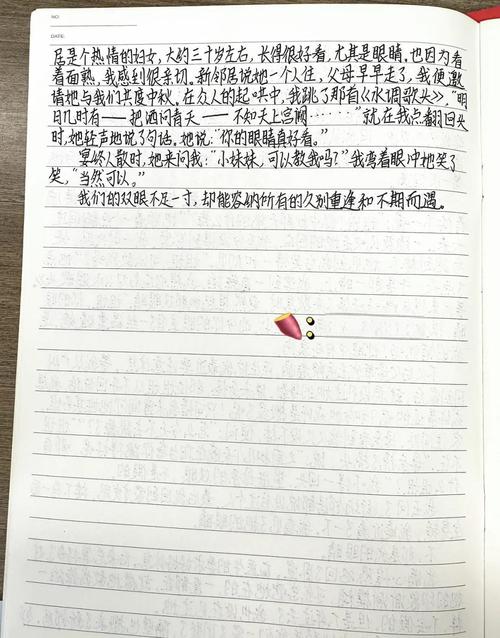 NO:
DATE:
居是个热情的妇女，大约三十岁左右，长得很好看，尤其是眼睛，也因为看
着面熟，我感到很亲切。新邻居说她一个人住，父母早早走了，我便邀
请她与我们共度中秋。在众人的起哄中，我跳了那首《水调歌头》，“明
日几时有——把酒问青天——不知天上宫阙……”就在我点翻回头
时，她轻声地说了句话。她说：“你的眼睛真好看。”
宴终人散时，她来问我：“小妹妹，可以教我吗？”我弯着眼冲她笑了
笑，“当然可以。”
我们的双眼不足一寸，却能容纳所有的久别重逢和不期而遇。